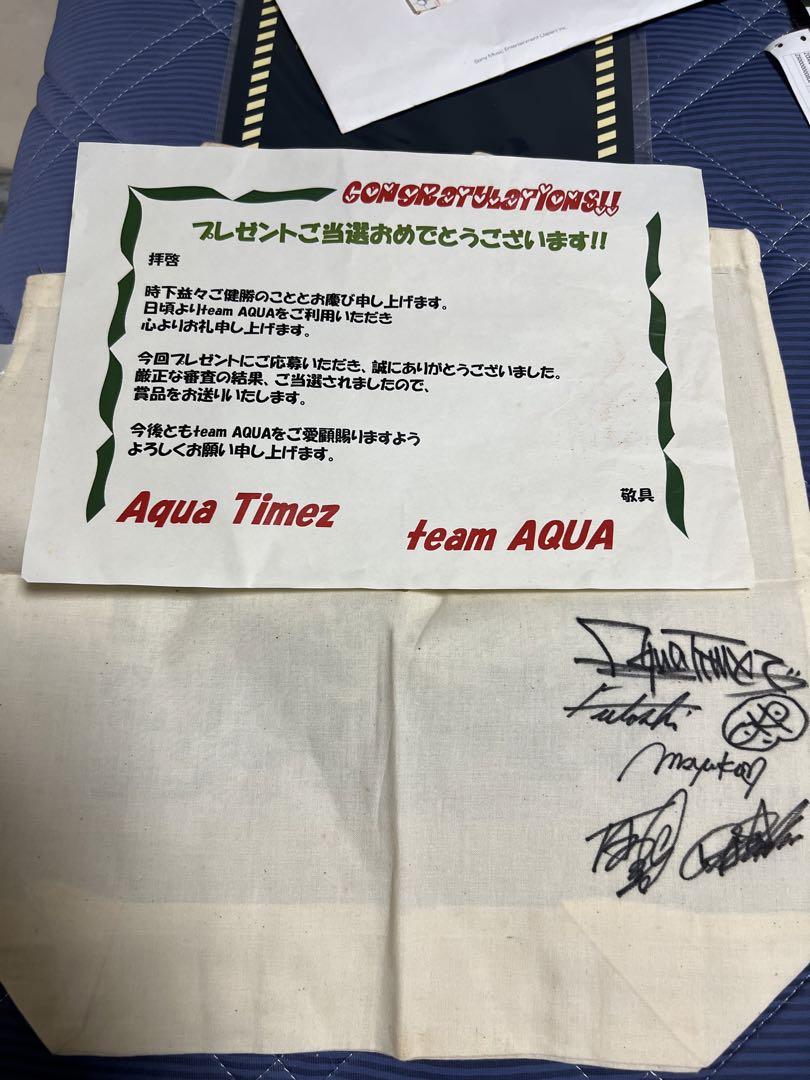 Sony Music Entertainment (Japan) Inc.
CONGRATULATIONS!!
プレゼントご当選おめでとうございます!!
拝啓
時下益々ご健勝のこととお慶び申し上げます。
日頃よりteam AQUAをご利用いただき
心よりお礼申し上げます。
今回プレゼントにご応募いただき、誠にありがとうございました。
厳正な審査の結果、ご当選されましたので、
賞品をお送りいたします。
今後ともteam AQUAをご愛顧賜りますよう
よろしくお願い申し上げます。
敬具
Aqua Timez
team AQUA
Aqua Timez
Futoshi
mayuko